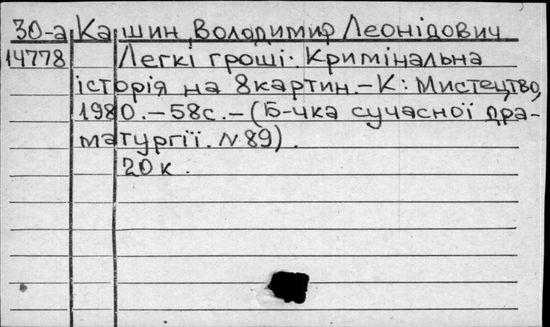 30-а Кашин, Володимир Леонідович
14778 Легкі гроші. Кримінальна
історія на 8 картин. – К: Мистецтво,
1980. – 58с. – (Б-чка сучасної дра-
матургії. N89).
20к.